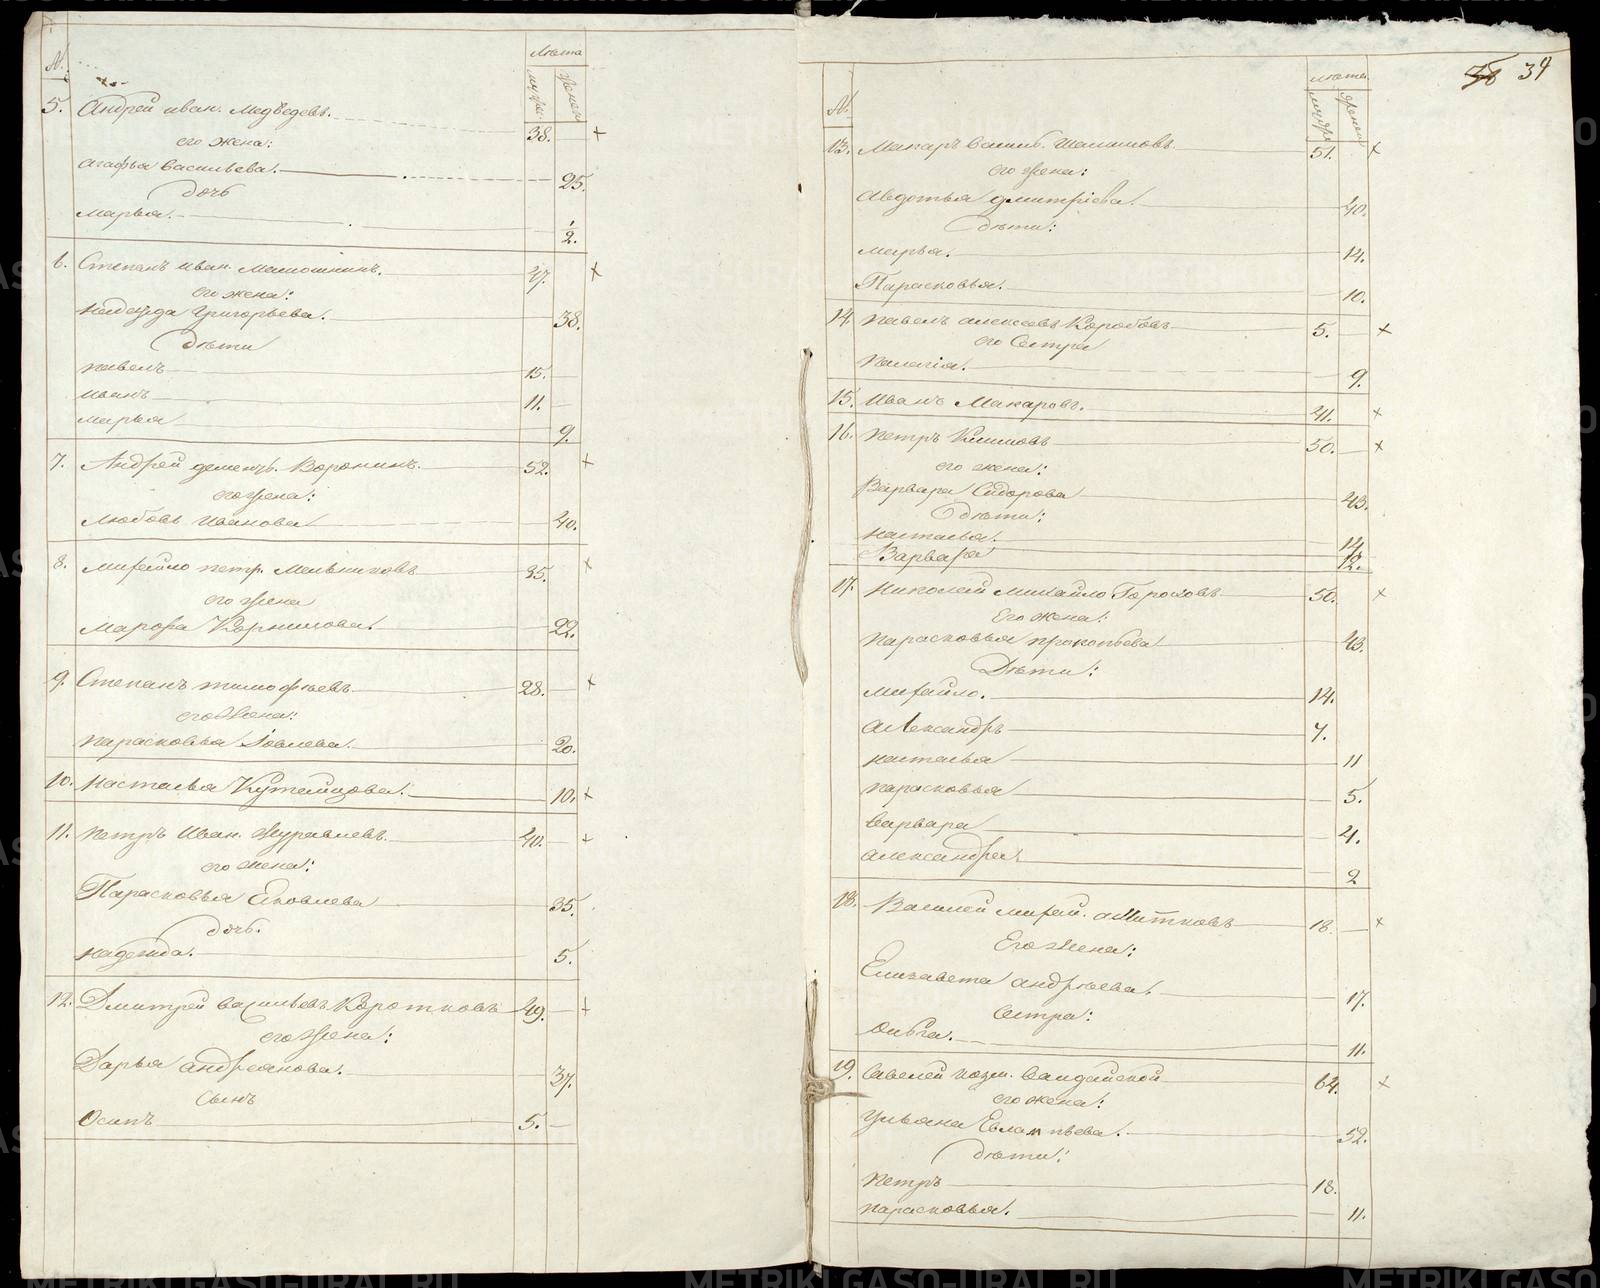 №
Лѣта
мужеск
женск
5. Андрей иван. Медведевъ. 38. +
его жена:
агафья васильева. 25.
дочь
марья. 1/2.
6. Степанъ иван. 47. +
его жена:
надежда Григорьева. 38.
дѣти
павелъ 15.
иванъ 11.
марья 9.
7. Андрей демент. Воронинъ. 52. +
его жена:
любовь иванова 40.
8. михайло петр. Мельниковъ 35. +
его жена
марфа Корнилова. 22.
9. Степанъ тимофѣевъ 28. +
его жена:
парасковья Іовлева. 20.
10. настасья 10. +
11. петръ Иван. Журавлевъ. 40. +
его жена:
Парасковья Яковлева 35.
дочь.
надежда. 5.
12. Дмитрей васильевъ Коротковъ 49. +
его жена:
Дарья андреянова. 37.
сынъ
Осипъ 5.
38 34
№
лѣта
13. Макаръ васил. 51. +
его жена:
авдотья дмитріева. 40.
дѣти:
марья. 14.
Парасковья. 10.
14. павелъ алексеевъ Коробовъ 5. +
его Сестра
пелагія. 9.
15. иванъ Макаровъ. 41. +
16. петръ Климовъ 50. +
его жена:
Варвара Сидорова 43.
дѣти:
настасья. 14.
Варвара 12.
17. николай михайло Гороховъ 50. +
Его жена:
парасковья прокопьева 43.
Дѣти:
михайло. 14.
александръ 7.
настасья 11
парасковья 5.
варвара 4.
александра 2
18. Василей михай. 18. +
Его жена:
Елизавета андрѣева. 17.
Сестра:
Ольга. 11.
19. савелей козм. валдайской 64. +
его жена:
ульяна Евлампьева. 52.
дѣти:
петръ 18.
парасковья. 11.
METRIKI.GASO-URAL.RU